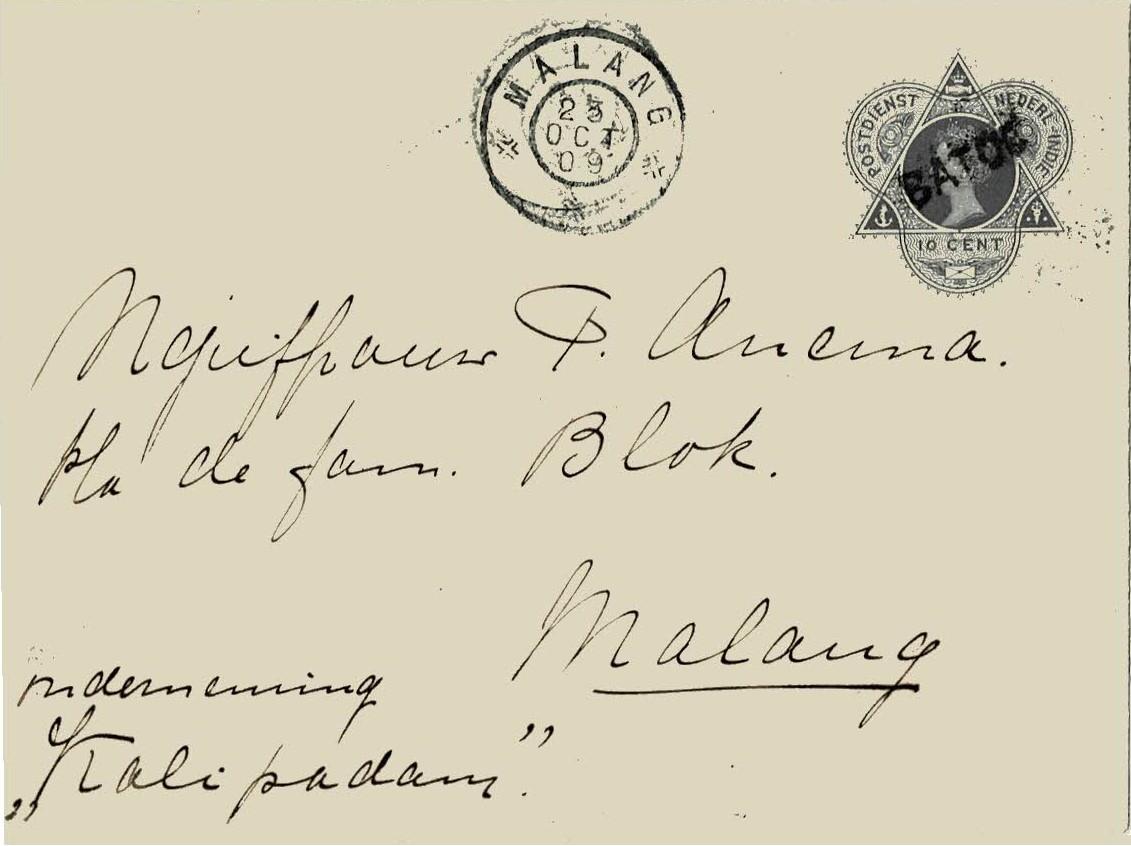 MALANG
25
OCT
09
POSTDIENST NEDERL-INDIE
BATOE
10 CENT
Mejuffrouw T. Ancma.
p/a de fam. Blok.
Malang
onderneming
„Kali padam”.